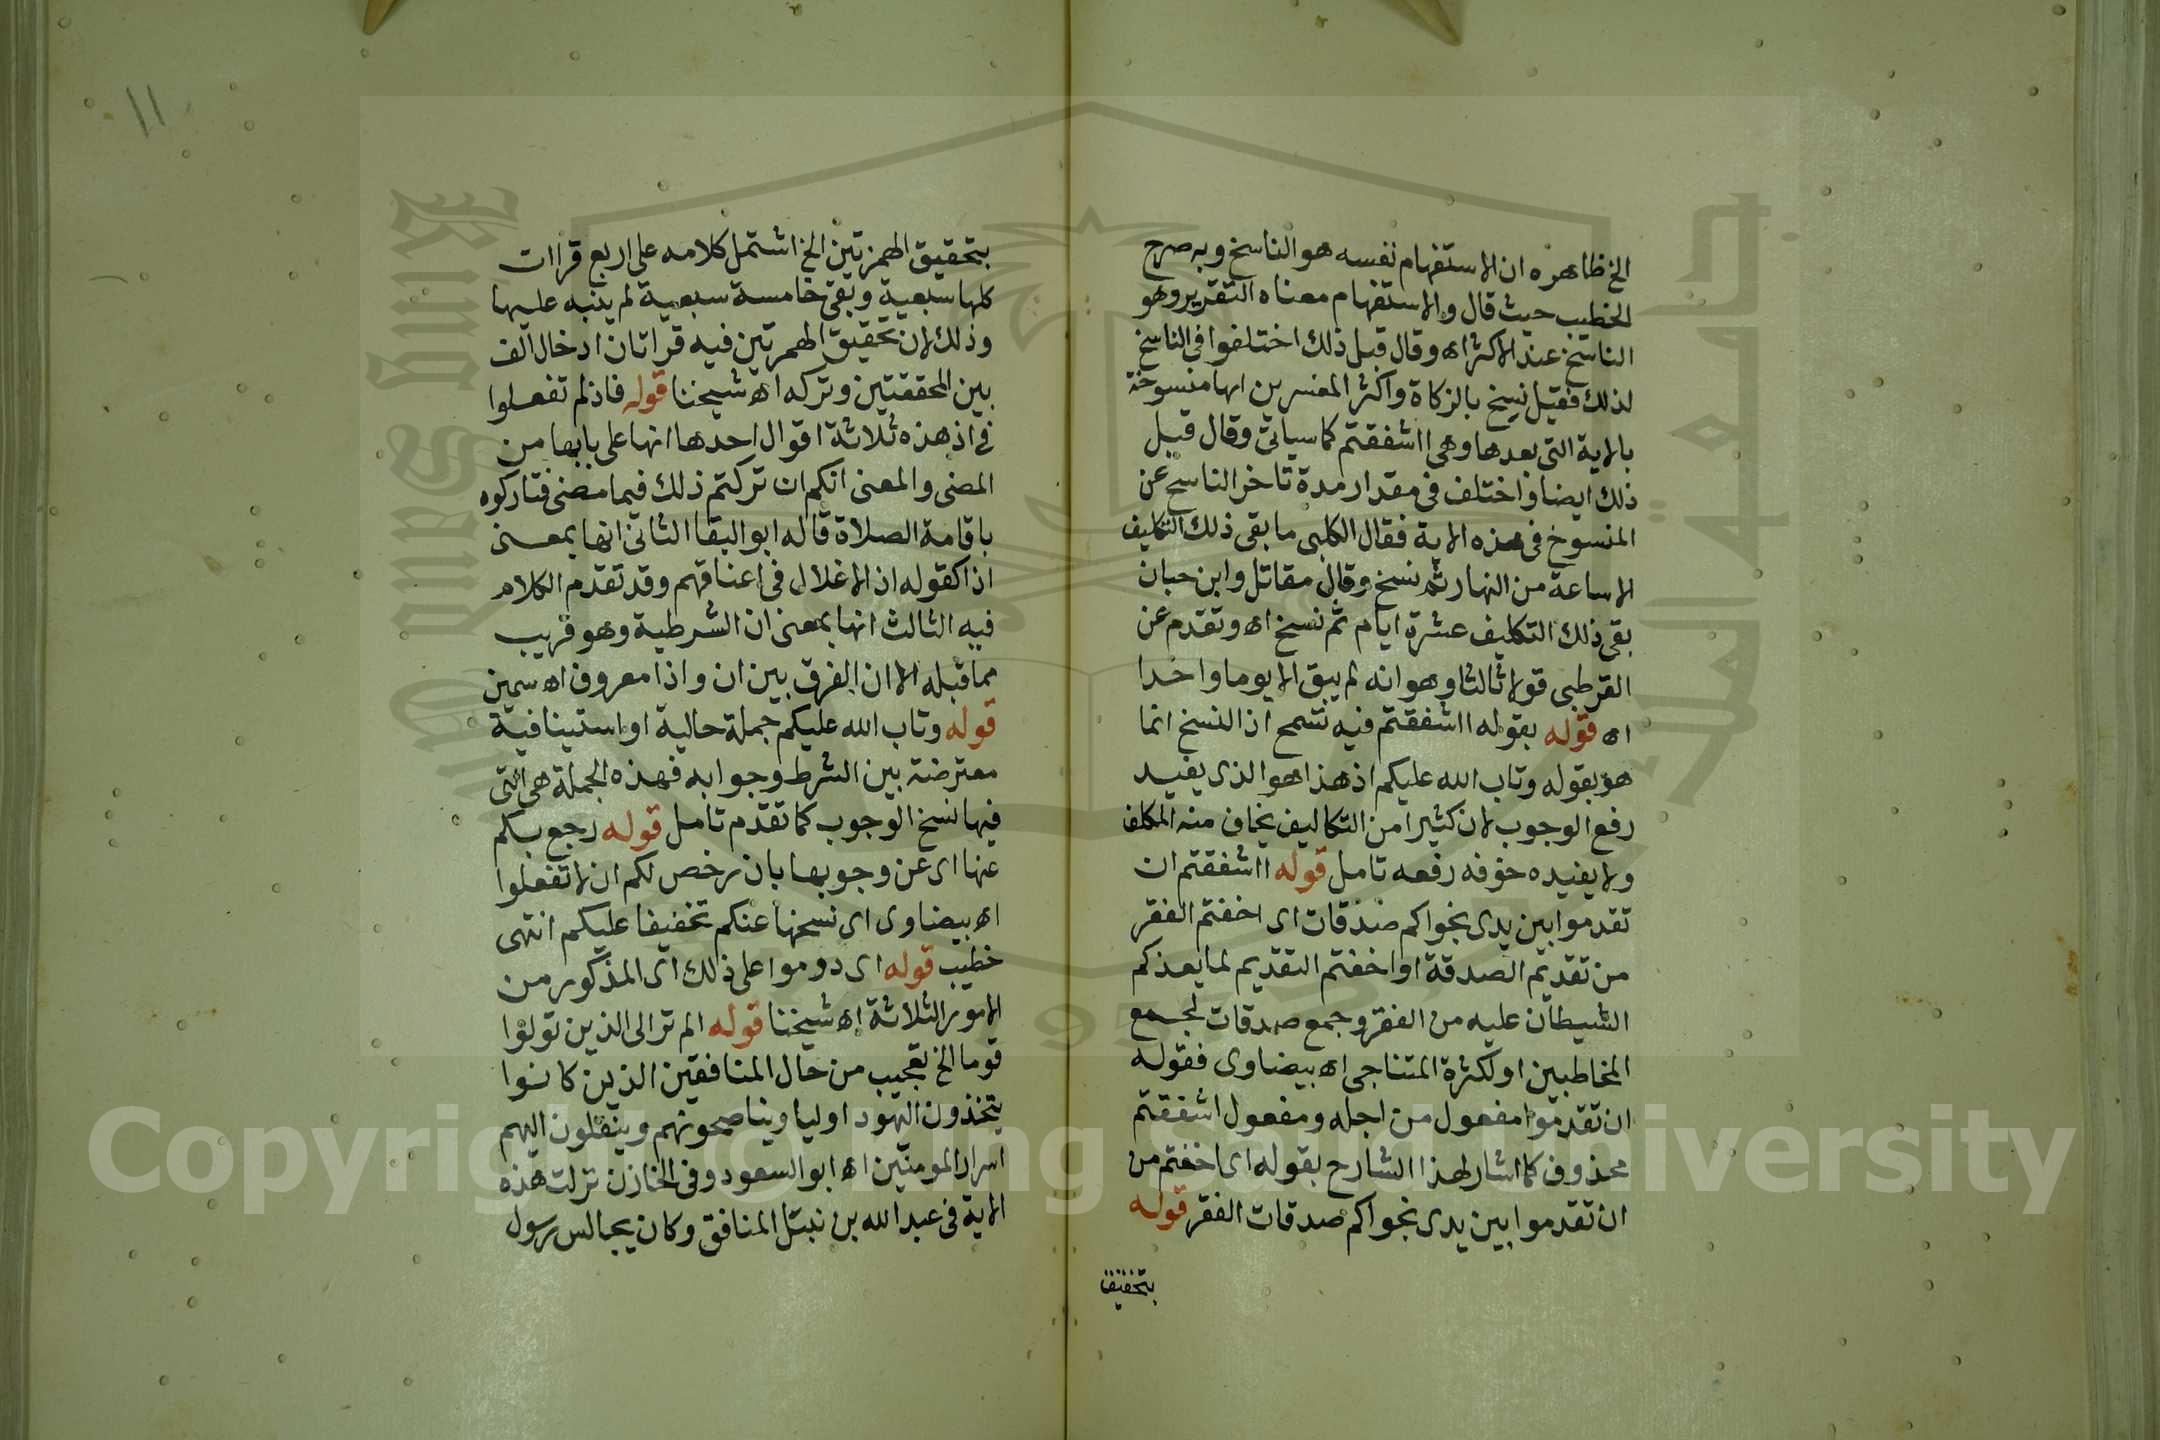 الخ ظاهره ان الاستفهام نفسه هو الناسخ وبه صرح
الخطيب حيث قال والاستفهام معناه التقرير وهو
الناسخ عند الاكثر اه وقال قبل ذلك اختلفوا في الناسخ
لذلك فقيل نسخ بالزكاة واكثر المفسرين انها منسوخة
بالاية التي بعدها وهي ااشفقتم كما سياتي وقال قبل
ذلك ايضا واختلف في مقدار مدة تاخر الناسخ عن
المنسوخ في هذه الاية فقال الكلبي ما بقي ذلك التكليف
الا ساعة من النهار ثم نسخ وقال مقاتل وابن حبان
بقي ذلك التكليف عشرة ايام ثم نسخ اه وتقدم عن
القرطبي قولا ثالثا وهو انه لم يبق الا يوما واحدا
اه قوله بقوله ااشفقتم فيه تسمح اذ النسخ انما
هو بقوله وتاب الله عليكم اذ هذا هو الذي يفيد
رفع الوجوب لان كثيرا من التكاليف يخاف منه المكلف
ولا يفيده خوفه رفعه تامل قوله ااشفقتم ان
تقدموا بين يدي نجواكم صدقات اي اخفتم الفقر
من تقديم الصدقة او اخفتم التقديم لما يعدكم
الشيطان عليه من الفقر وجمع صدقات لجمع
المخاطبين او لكثرة المتناجي اه بيضاوي فقوله
ان تقدموا مفعول من اجله ومفعول اشفقتم
محذوف كما اشار لهذا الشارح بقوله اي اخفتم من
ان تقدموا بين يدي نجواكم صدقات الفقر قوله
بتحقيق
١١
بتحقيق الهمزتين الخ اشتمل كلامه على اربع قراات
كلها سبعية وبقي خامسة سبعية لم ينبه عليها
وذلك لان تحقيق الهمزتين فيه قراتان ادخال الف
بين المحققتين وتركه اه شيخنا قوله فاذ لم تفعلوا
في اذ هذه ثلاثة اقوال احدها انها على بابها من
المضي والمعنى انكم ان تركتم ذلك فيما مضى فتداركوه
باقامة الصلاة قاله ابو البقا الثاني انها بمعنى
اذا كقوله اذ الاغلال في اعناقهم وقد تقدم الكلام
فيه الثالث انها بمعنى ان الشرطية وهو قريب
مما قبله الا ان الفرق بين ان واذا معروف اه سمين
قوله وتاب الله عليكم جملة حالية او استينافية
معترضة بين الشرط وجوابه فهذه الجملة هي التي
فيها نسخ الوجوب كما تقدم تامل قوله رجع بكم
عنها اي عن وجوبها بان رخص لكم ان لا تفعلوا
اه بيضاوي اي نسخها عنكم تخفيفا عليكم انتهى
خطيب قوله اي دوموا على ذلك اي المذكور من
الامور الثلاثة اه شيخنا قوله الم تر الى الذين تولوا
قوما الخ تعجيب من حال المنافقين الذين كانوا
يتخذون اليهود اوليا ويناصحونهم وينقلون اليهم
اسرار المومنين اه ابو السعود وفي الخازن نزلت هذه
الاية في عبد الله بن نبتل المنافق وكان يجالس رسول
Copyright © King Saud University